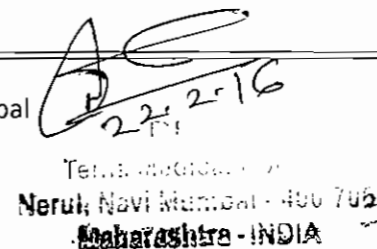 pal
22.2.16
Nerul, Navi Mumbai - 400 706
Maharashtra - INDIA